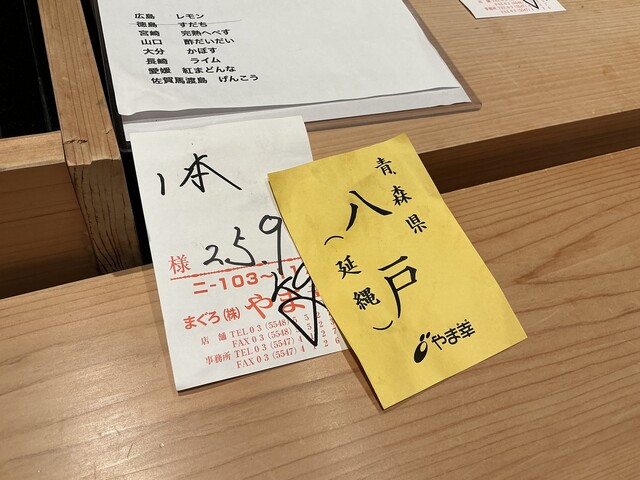 広島 レモン
徳島 すだち
宮崎 完熟へべす
山口 酢だいだい
大分 かぼす
長崎 ライム
愛媛 紅まどんな
佐賀馬渡島 げんこう
1本
25.9
様
ニ-103~
まぐろ(株)やま
店舗 TEL 03 (5548)
FAX 03 (5548)
事務所 TEL 03 (5547)
FAX 03 (5547)
青森県
八戸
(延縄)
やま幸